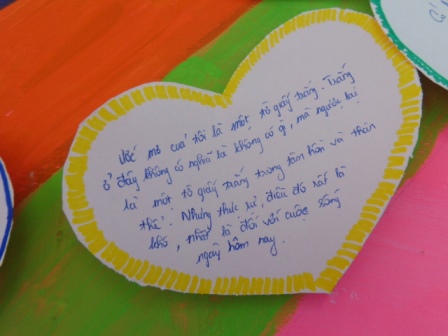 Ước mơ của tôi là một tờ giấy trắng. Trắng
ở đây không có nghĩa là không có gì, mà ngược lại
là một tờ giấy trắng trong tâm hồn và thân
thể. Nhưng thực sự, điều đó rất là
khó, nhất là đối với cuộc sống
ngày hôm nay.